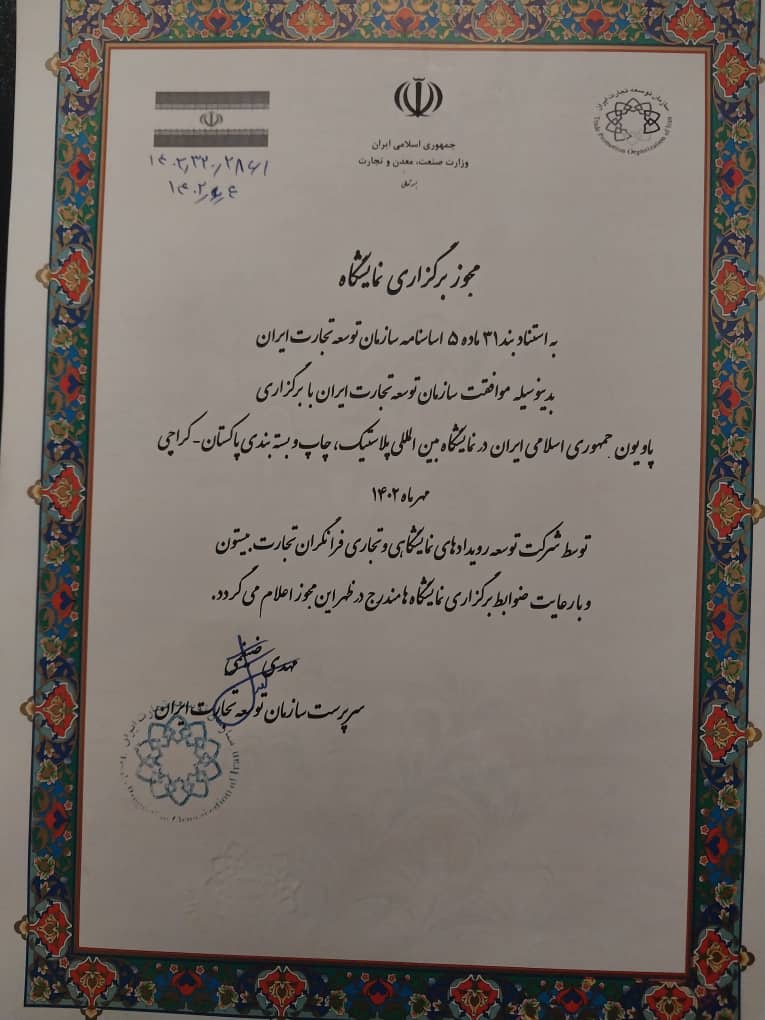 جمهوری اسلامی ایران
وزارت صنعت، معدن و تجارت
بسمه تعالی
سازمان توسعه تجارت ایران
Trade Promotion Organization of Iran
مجوز برگزاری نمایشگاه
به استناد بند ۳۱ ماده ۵ اساسنامه سازمان توسعه تجارت ایران
بدینوسیله موافقت سازمان توسعه تجارت ایران با برگزاری
پاویون جمهوری اسلامی ایران در نمایشگاه بین المللی پلاستیک، چاپ و بسته بندی پاکستان - کراچی
مهرماه ۱۴۰۲
توسط شرکت توسعه رویدادهای نمایشگاهی و تجاری فرانگران تجارت بیستون
و با رعایت ضوابط برگزاری نمایشگاه ها مندرج در ظهر این مجوز اعلام می گردد.
مهدی ضیغمی
سرپرست سازمان توسعه تجارت ایران